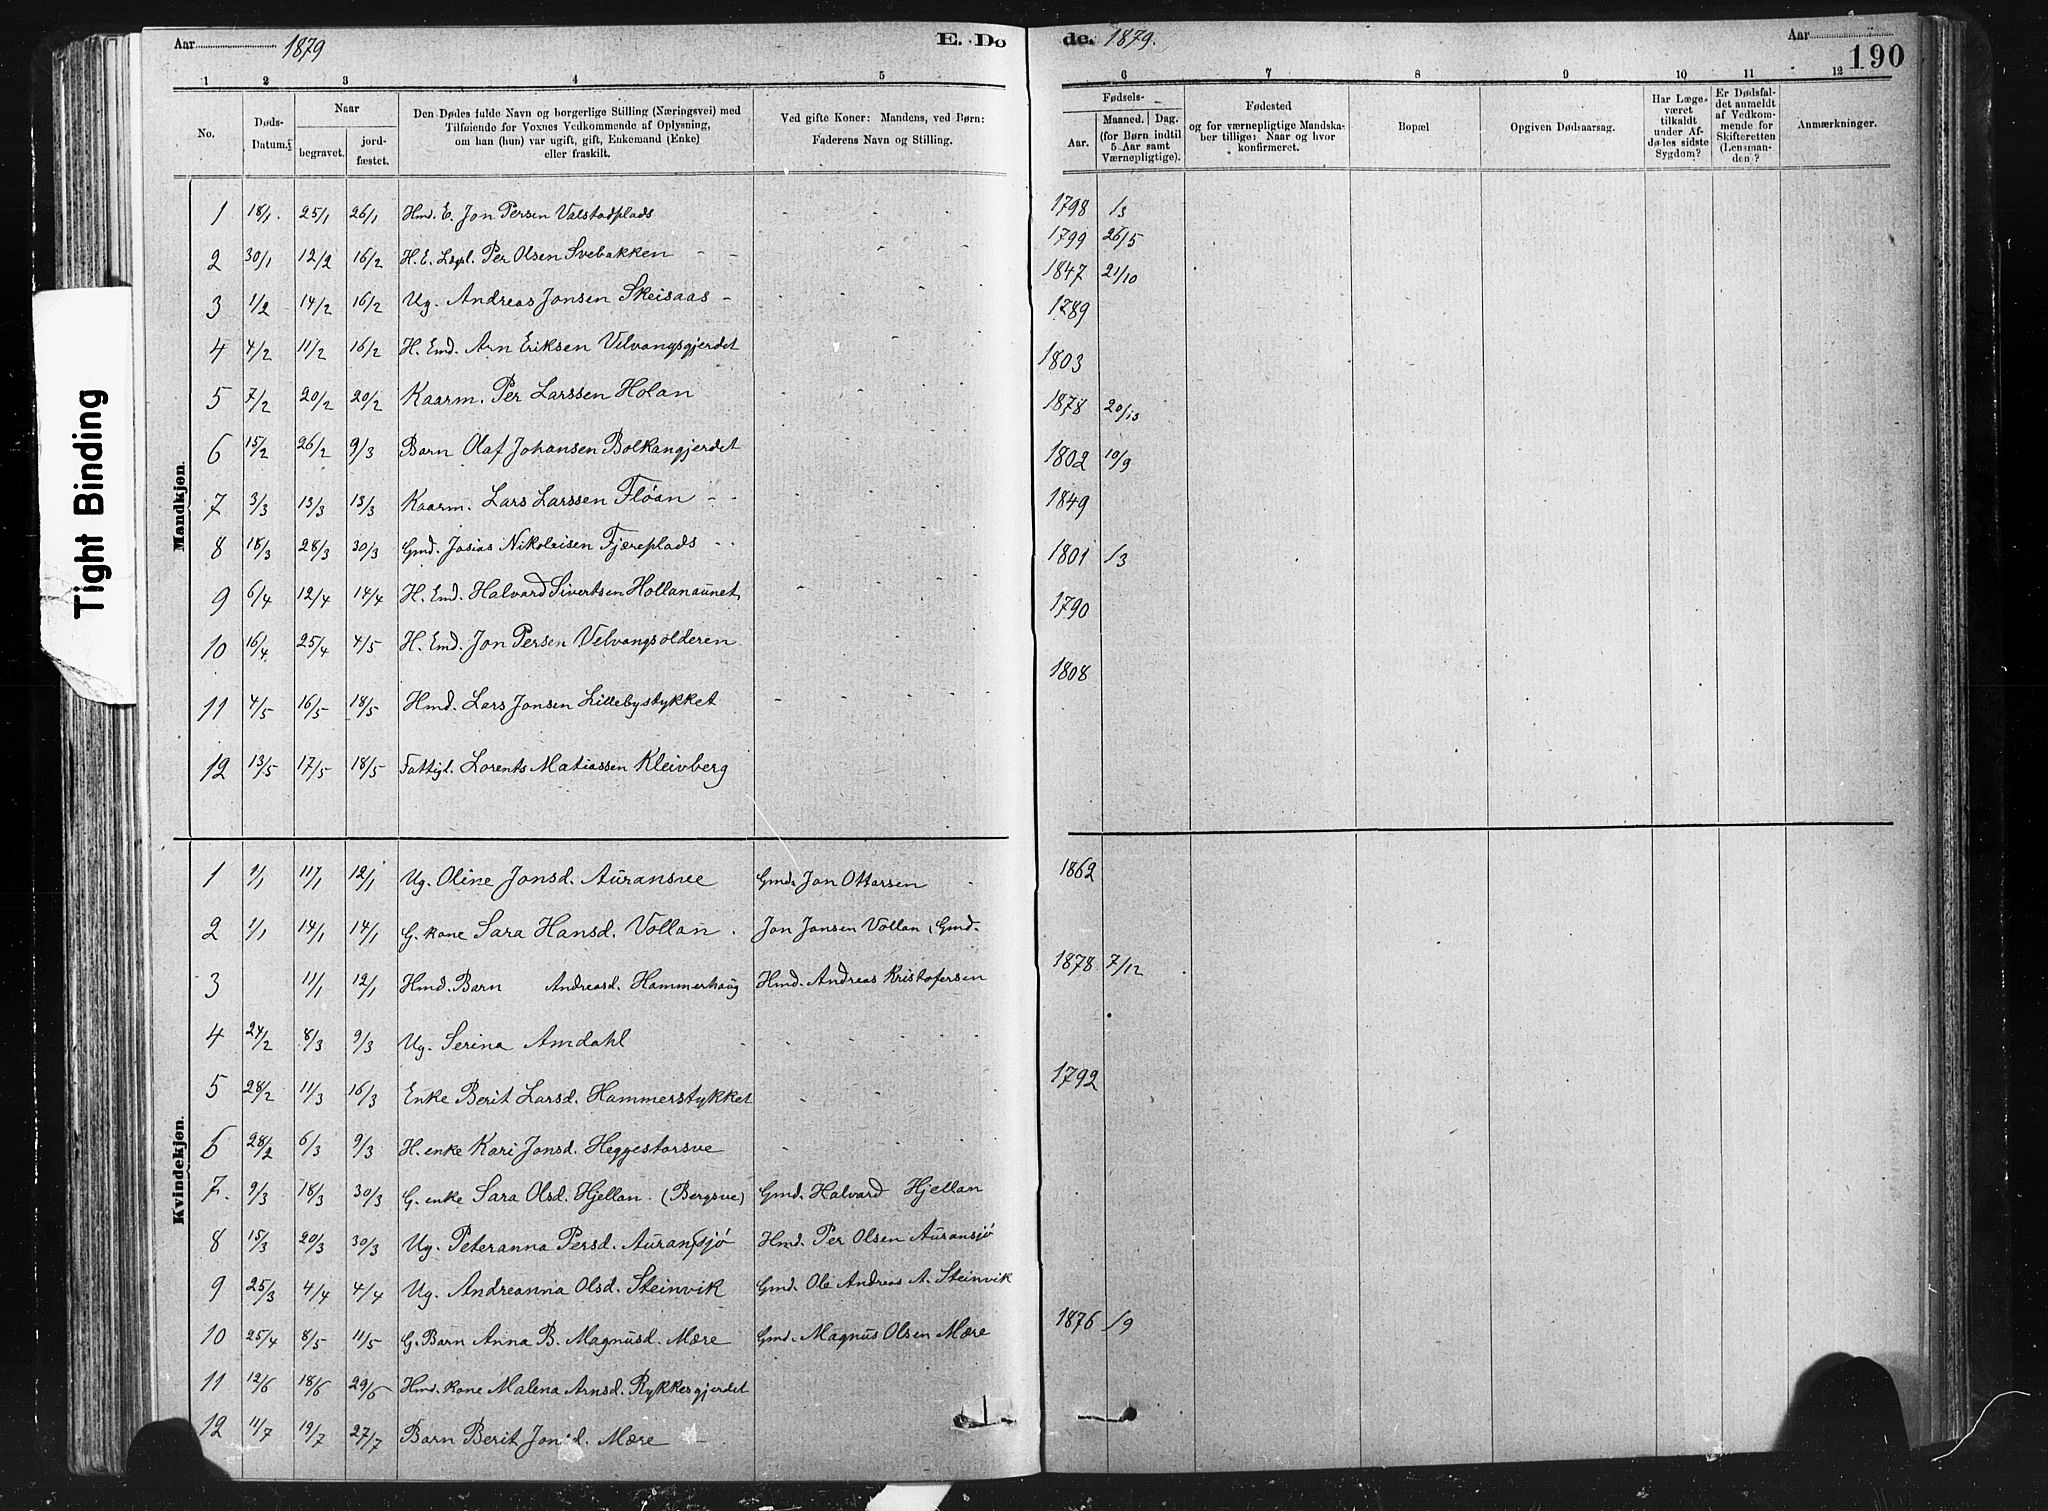 Aar 1879 E. Dø
de. 1879. Aar 190
1 2 3 4 5 6 7 8 9 10 11 12
No. Døds-Datum. Naar begravet. jordfæstet. Den Dødes fulde Navn og borgerlige Stilling (Næringsvei) med Tilføiende for Voxnes Vedkommende af Oplysning, om han (hun) var ugift, gift, Enkemand (Enke) eller fraskilt. Ved gifte Koner: Mandens, ved Børn: Faderens Navn og Stilling.
Fødsels- Aar. Maaned. Dag. (for Børn indtil 5 Aar samt Værnepligtige). Fødested og for værnepligtige Mandskaber tillige: Naar og hvor konfirmeret. Bopæl Opgiven Dødsaarsag. Har Læge været tilkaldt under Afdødes sidste Sygdom? Er Dødsfaldet anmeldt af Vedkommende for Skifteretten (Lensmanden)? Anmærkninger.
Tight Binding
Mandkjøn.
1 18/1 25/1 26/1 Hmd. E. Jon Persen Valstadplads 1798 1/3
2 30/1 12/2 16/2 H. E. Lægl. Per Olsen Svebakken - - 1799 26/5
3 1/2 14/2 16/2 Ug. Andreas Jonsen Skeisaas - 1847 21/10
4 4/2 11/2 16/2 H. Emd. Arn Eriksen Velvangsgjerdet 1789
5 7/2 20/2 20/2 Kaarm. Per Larssen Holan 1803
6 15/2 26/2 9/3 Barn Olaf Johansen Bolkangjerdet 1878 20/13
7 3/3 13/3 13/3 Kaarm. Lars Larssen Fløan - - 1802 10/9
8 18/3 28/3 30/3 Gmd. Josias Nikoleisen Fjæreplads - - 1849
9 6/4 12/4 14/4 H. Emd. Halvard Sivertsen Hollanaunet 1801 1/3
10 16/4 25/4 4/5 H. Emd. Jon Persen Velvangsolderen 1790
11 4/5 16/5 18/5 Hmd. Lars Jonsen Lillebystykket 1808
12 13/5 17/5 18/5 Fattigl. Lorents Matiassen Kleivberg
Kvindekjøn.
1 1/1 11/1 12/1 Ug. Oline Jonsd. Auransvee Gmd. Jon Ottersen 1862
2 1/1 14/1 14/1 G. kone Sara Hansd. Vollan. Jon Jonsen Vollan, Gmd.
3 11/1 12/1 Hmd. Barn Andreasd. Hammerhaug Hmd. Andreas Kristofersen 1878 7/12
4 24/2 8/3 9/3 Ug. Serina Amdahl
5 28/2 11/3 16/3 Enke Berit Larsd. Hammerstykket 1792
6 28/2 6/3 9/3 H. enke Kari Jonsd. Heggestorsve
7. 9/3 18/3 30/3 G. enke Sara Olsd. Hjellan. (Bergsve) Gmd. Halvard Hjellan
8 15/3 20/3 30/3 Ug. Peteranna Persd. Auransjø Hmd. Per Olsen Auransjö
9 25/3 4/4 4/4 Ug. Andreanna Olsd. Steinvik Gmd. Ole Andreas A. Steinvik
10 25/4 8/5 11/5 G. Barn Anna B. Magnusd. Mære Gmd. Magnus Olsen Mære 1876 1/9
11 12/6 18/6 29/6 Hmd. kone Malena Arnsd. Rykkesgjerdet
12 11/7 19/7 27/7 Barn Berit Jonsd. Mære -